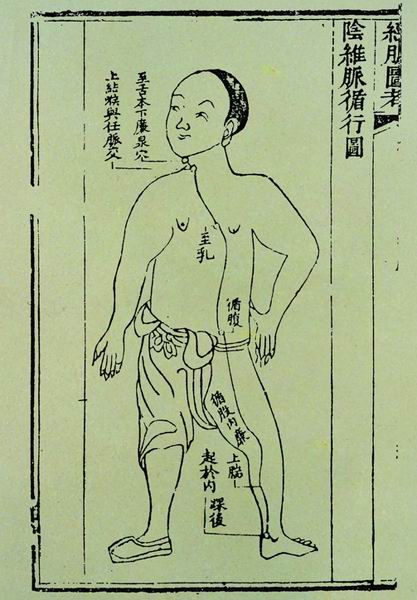 經脈圖考
陰維脈循行圖
至舌本下廉泉穴
上結喉與任脈交
至乳
循腹
循股內廉
上腨
起於內踝後